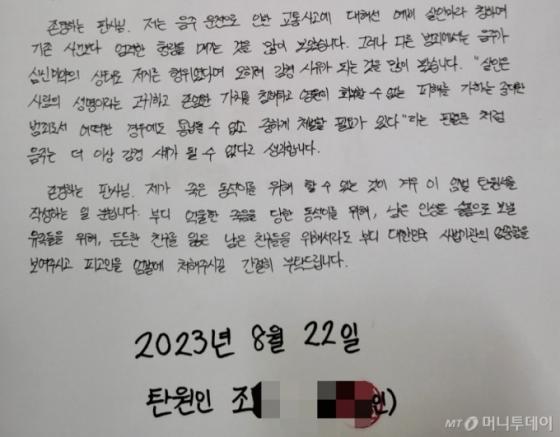 존경하는 판사님. 저는 음주 운전으로 인한 교통사고에 대해선 예비 살인마라 칭하며
기존 사건보다 엄격한 형량을 매기는 것을 많이 보았습니다. 그러나 다른 범죄에서는 음주가
심신미약의 상태로 저지른 행위였다며 오히려 감경 사유가 되는 것을 많이 봤습니다. "살인은
사람의 생명이라는 고귀하고 존엄한 가치를 침해하고 영원히 회복할 수 없는 피해를 가하는 중대한
범죄로서 어떠한 경우에도 용납될 수 없고 중하게 처벌할 필요가 있다"라는 판결문처럼
음주는 더 이상 감경 사유가 될 수 없다고 생각합니다.
존경하는 판사님. 제가 죽은 동석이를 위해 할 수 있는 것이 겨우 이 엄벌 탄원서를
작성하는 일 뿐입니다. 부디 억울한 죽음을 당한 동석이를 위해, 남은 인생을 슬픔으로 보낼
유족들을 위해, 든든한 친구를 잃은 남은 친구들을 위해서라도 부디 대한민국 사법기관의 엄중함을
보여주시고 피고인을 엄벌에 처해주시길 간절히 부탁드립니다.
2023년 8월 22일
탄원인 조 인)
MT 머니투데이